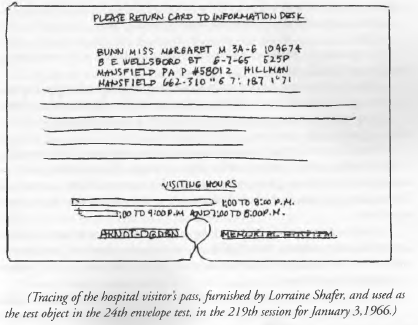 PLEASE RETURN CARD TO INFORMATION DESK
BUNN MISS MARGARET M 3A-6 109674
8 E WELLSBORO ST 6-7-65 525P
MANSFIELD PA P #58012 HILLMAN
MANSFIELD 662-310
VISITING HOURS
1:00 TO 8:00 P.M.
TO 4:00 P.M AND 7:00 TO 8:00P.M.
ARNOT-OGDEN MEMORIAL HOSPITAL
(Tracing of the hospital visitor's pass, furnished by Lorraine Shafer, and used as
the test object in the 24th envelope test, in the 219th session for January 3,1966.)